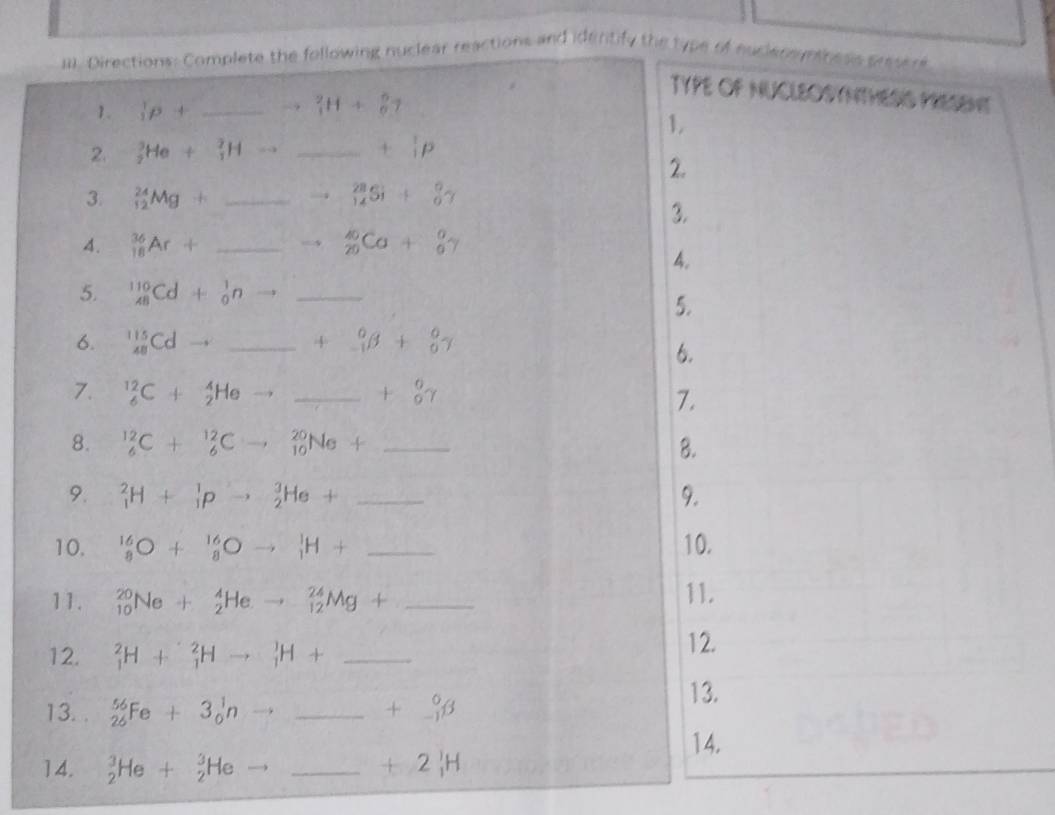 III. Directions: Complete the following nuclear reactions and identify the type of nucleosynthesis present.
TYPE OF NUCLEOSYNTHESIS PRESENT
1. ¹₁p + ______ → ²₁H + ⁰₀γ
2. ³₂He + ²₁H → ______ + ¹₁p
3. ²⁴₁₂Mg + ______ → ²⁸₁₄Si + ⁰₀γ
4. ³⁶₁₈Ar + ______ → ⁴⁰₂₀Ca + ⁰₀γ
5. ¹¹⁰₄₈Cd + ¹₀n → ______
6. ¹¹⁵₄₈Cd → ______ + ⁰₋₁β + ⁰₀γ
7. ¹²₆C + ⁴₂He → ______ + ⁰₀γ
8. ¹²₆C + ¹²₆C → ²⁰₁₀Ne + ______
9. ²₁H + ¹₁p → ³₂He + ______
10. ¹⁶₈O + ¹⁶₈O → ¹₁H + ______
11. ²⁰₁₀Ne + ⁴₂He → ²⁴₁₂Mg + ______
12. ²₁H + ²₁H → ¹₁H + ______
13. ⁵⁶₂₆Fe + 3¹₀n → ______ + ⁰₋₁β
14. ³₂He + ³₂He → ______ + 2 ¹₁H
1.
2.
3.
4.
5.
6.
7.
8.
9.
10.
11.
12.
13.
14.